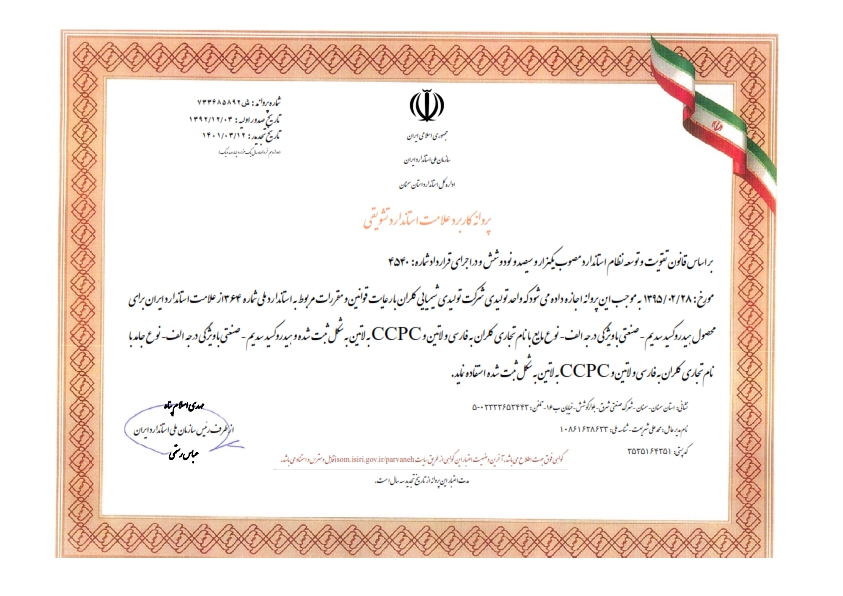 شماره پروانه: ش ۷۳۳۶۸۵۸۹۲
تاریخ صدور اولیه: ۱۳۹۲/۱۲/۰۳
تاریخ تجدید: ۱۴۰۱/۰۳/۱۲
جمهوری اسلامی ایران
سازمان ملی استاندارد ایران
اداره کل استاندارد استان سمنان
پروانه کاربرد علامت استاندارد تشویقی
بر اساس قانون تقویت و توسعه نظام استاندارد مصوب یکهزار و سیصد و نود و شش و در اجرای قرارداد شماره: ۴۵۴۰
مورخ: ۱۳۹۵/۰۲/۲۸ به موجب این پروانه اجازه داده می شود که واحد تولیدی شرکت تولیدی شیمیایی کلران با رعایت قوانین و مقررات مربوط به استاندارد ملی شماره ۳۶۴ از علامت استاندارد ایران برای
محصول هیدروکسید سدیم - صنعتی با ویژگی درجه الف - نوع مایع با نام تجاری کلران به فارسی و لاتین و CCPC به لاتین به شکل ثبت شده و هیدروکسید سدیم - صنعتی با ویژگی درجه الف - نوع جامد با
نام تجاری کلران به فارسی و لاتین و CCPC به لاتین به شکل ثبت شده استفاده نماید.
نشانی: استان سمنان - سمنان - شهرک صنعتی شرق - بلوار کوشش - خیابان ب ۱۶ - تلفن: ۰۲۳۳۳۶۵۳۴۴۳-۵
نام مدیر عامل: محمد علی شریعت - شناسه ملی: ۱۰۸۶۱۶۳۸۶۳۳
کد پستی: ۳۵۳۵۱۶۴۳۵۱
مهدی اسلام پناه
از طرف رئیس سازمان ملی استاندارد ایران
عباس رستمی
گواهی فوق جهت اطلاع می باشد. آخرین وضعیت اعتبار این گواهی از طریق سایت isom.isiri.gov.ir/parvaneh قابل دسترس و استناد می باشد.
مدت اعتبار این پروانه از تاریخ تجدید سه سال است.